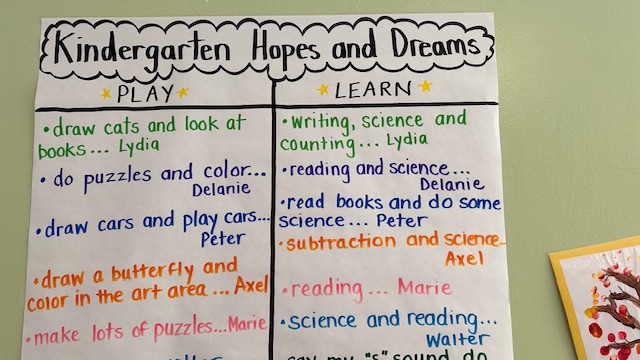 Kindergarten Hopes and Dreams
PLAY
• draw cats and look at
books... Lydia
• do puzzles and color...
Delanie
• draw cars and play cars...
Peter
• draw a butterfly and
color in the art area ... Axel
• make lots of puzzles...Marie
LEARN
• writing, science and
counting... Lydia
• reading and science...
Delanie
• read books and do some
science... Peter
• subtraction and science-
Axel
• reading... Marie
• science and reading...
Walter
say my "s" sound do